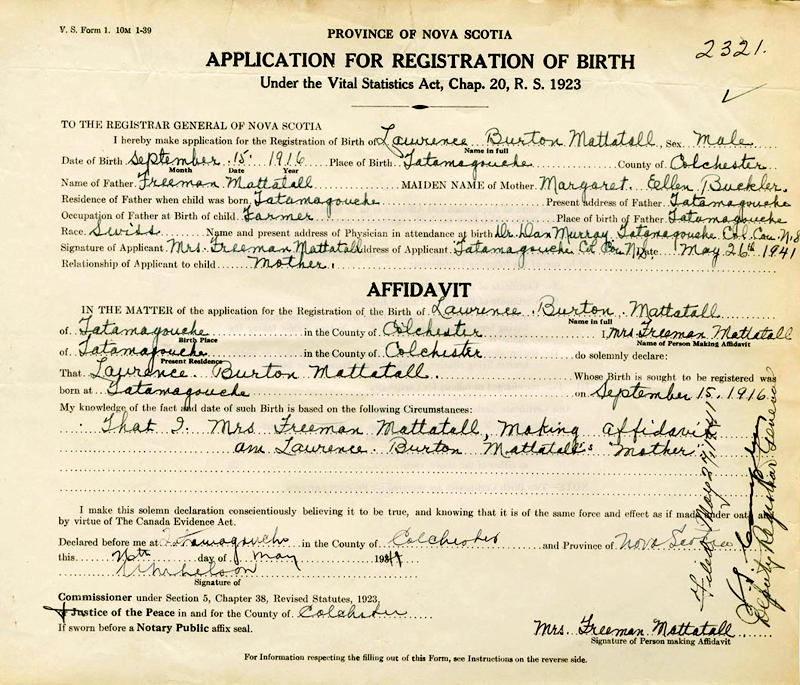 V. S. Form 1. 10M 1-39
PROVINCE OF NOVA SCOTIA
2321.
APPLICATION FOR REGISTRATION OF BIRTH
Under the Vital Statistics Act, Chap. 20, R. S. 1923
TO THE REGISTRAR GENERAL OF NOVA SCOTIA
I hereby make application for the Registration of Birth of Lawrence Burton Mattatall, Sex Male
Name in full
Date of Birth September 15 1916 Place of Birth Tatamagouche County of Colchester
Month Date Year
Name of Father Freeman Mattatall MAIDEN NAME of Mother Margaret Ellen Buckler.
Residence of Father when child was born Tatamagouche Present address of Father Tatamagouche
Occupation of Father at Birth of child Farmer Place of birth of Father Tatamagouche
Race Swiss Name and present address of Physician in attendance at birth Dr. Dan Murray, Tatamagouche Col. Cou. N.S
Signature of Applicant Mrs. Freeman Mattatall Address of Applicant Tatamagouche Col Cou N.S Date May 26th 1941
Relationship of Applicant to child Mother.
AFFIDAVIT
IN THE MATTER of the application for the Registration, of the Birth of Lawrence Burton Mattatall
Name in full
of Tatamagouche in the County of Colchester I, Mrs Freeman Mattatall
Birth Place Name of Person Making Affidavit
of Tatamagouche in the County of Colchester do solemnly declare:
Present Residence
That Lawrence Burton Mattatall Whose Birth is sought to be registered was
born at Tatamagouche on September 15, 1916.
My knowledge of the fact and date of such Birth is based on the following Circumstances:
That I Mrs Freeman Mattatall, Making affidavit
am Lawrence Burton Mattatall's Mother.
I make this solemn declaration conscientiously believing it to be true, and knowing that it is of the same force and effect as if made under oath and
by virtue of The Canada Evidence Act.
Declared before me at Tatamagouche in the County of Colchester and Province of Nova Scotia
this day of May 1941
Signature of
Commissioner under Section 5, Chapter 38, Revised Statutes, 1923,
Justice of the Peace in and for the County of Colchester
If sworn before a Notary Public affix seal.
Mrs. Freeman Mattatall
Signature of Person making Affidavit
For Information respecting the filling out of this Form, see Instructions on the reverse side.
Filed May 27/1941
Deputy Registrar General